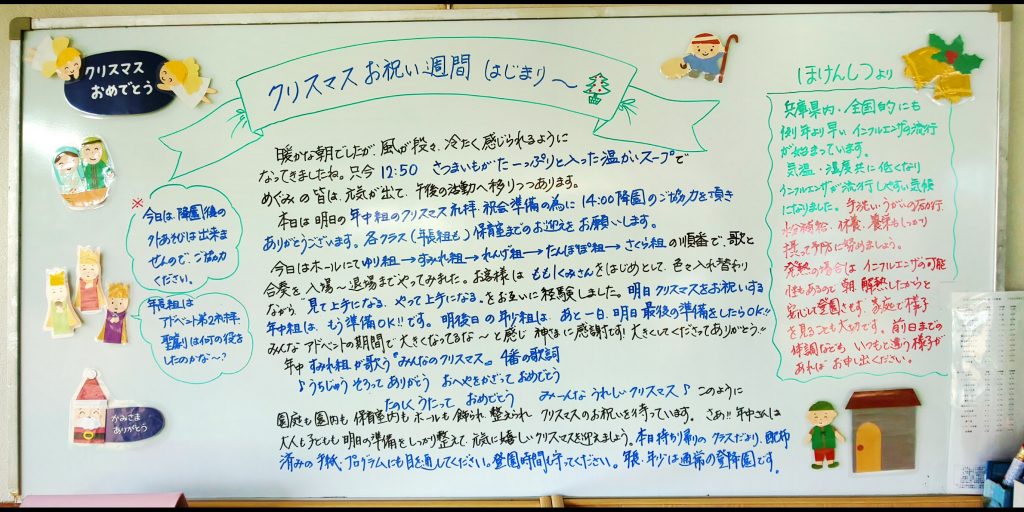 クリスマス
おめでとう
クリスマスお祝い週間 はじまり〜
暖かな朝でしたが、風が段々、冷たく感じられるように
なってきましたね。只今 12:50 さつまいもがたーっぷりと入った温かいスープで
めぐみの皆は、元気が出て、午後の活動へ移りつつあります。
本日は明日の年中組のクリスマス礼拝・祝会準備の為に 14:00降園のご協力を頂き
ありがとうございます。各クラス(年長組も)保育室までのお迎えをお願いします。
今日はホールにてゆり組→すみれ組→れんげ組→たんぽぽ組→さくら組の順番で、歌と
合奏を入場〜退場までやってみました。お客様はももくみさんをはじめとして、色々入れ替わり
ながら、"見て上手になる、やって上手になる"をお互いに経験しました。明日クリスマスをお祝いする
年中組は、もう準備OK!!です。明後日の年少組は、あと一日、明日最後の準備をしたらOK!!
みんなアドベントの期間で大きくなってるな〜と感じ神さまに感謝です!大きくしてくださってありがとう!!
年中すみれ組が歌う"みんなのクリスマス"4番の歌詞
♪うちじゅうそろってありがとう おへやをかざっておめでとう
たのしくうたって おめでとう みーんなうれしいクリスマス♪ このように
園庭も園内も保育室内もホールも飾られ整えられ クリスマスのお祝いを待っています。さあ!!年中さんは
大人も子ども明日の準備をしっかり整えて元気に嬉しいクリスマスを迎えましょう。本日持ち帰りのクラスだより、配布
済みの手紙、プログラムにも目を通してください。登園時間も守ってください。年長・年少は通常の登降園です。
※
今日は、降園後の
外あそびは出来ま
せんので、ご協力
ください。
年長組は
アドベント第2礼拝、
聖劇は何の役を
したのかな〜?
かみさま
ありがとう
ほけんしつより
兵庫県内・全国的にも
例年より早いインフルエンザの流行
が始まっています。
気温・湿度共に低くなり
インフルエンザが流行しやすい気候
になりました。手洗い・うがいの励行、
水分補給・休養・栄養もしっかり
摂って予防に努めましょう。
発熱の場合はインフルエンザの可能
性もあるので 朝、解熱したからと
安心して登園させず、家庭で様子
を見ることも大切です。前日までの
体調なども いつもと違う様子が
あればお申し出ください。